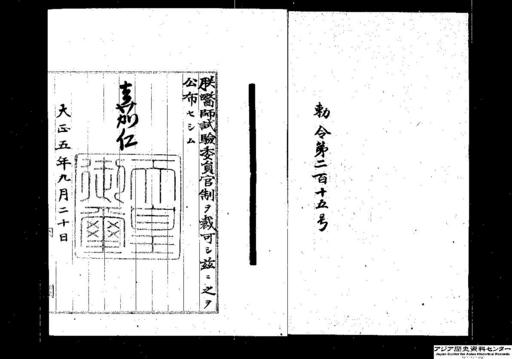 勅令第二百十五号
朕醫師試驗委員官制ヲ裁可シ茲ニ之ヲ
公布セシム
嘉仁
天皇
御璽
大正五年九月二十日
アジア歴史資料センター
Japan Center for Asian Historical Records